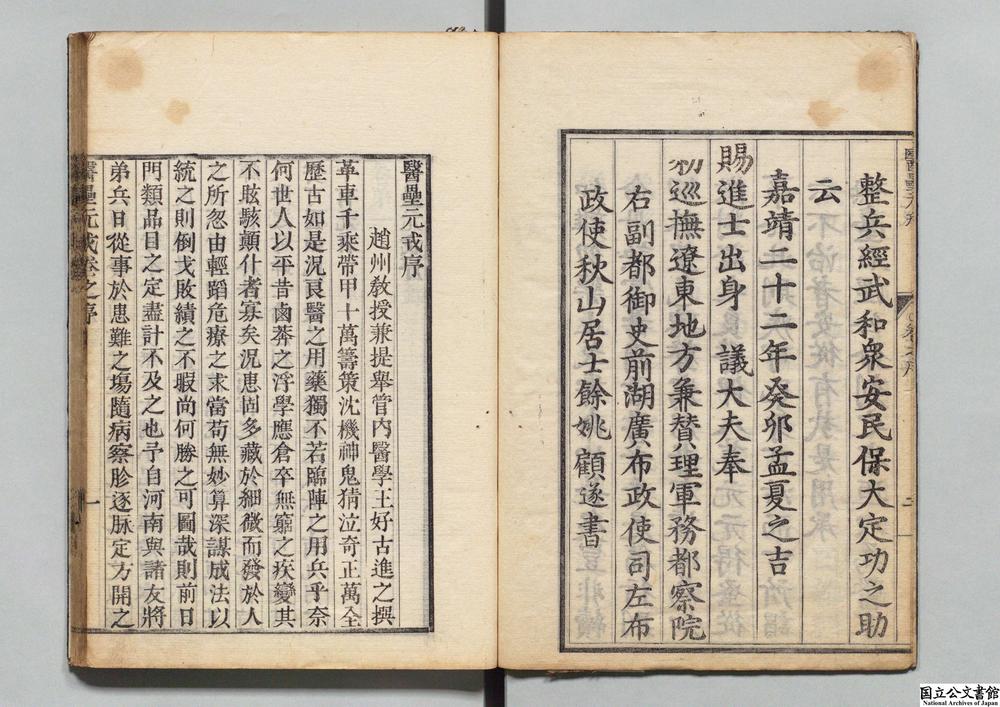 整兵經武和衆安民保大定功之助
云
嘉靖二十二年癸卯孟夏之吉
賜進士出身 議大夫奉
勑巡撫遼東地方兼贊理軍務都察院
右副都御史前湖廣布政使司左布
政使秋山居士餘姚顧遂書
醫壘元戎序
趙州敎授兼提舉管內醫學王好古進之撰
革車千乘帶甲十萬籌策沈機神鬼猜泣奇正萬全
歷古如是況良醫之用藥獨不若臨陣之用兵乎奈
何世人以平昔鹵莽之浮學應倉卒無窮之疾變其
不眩駭顛仆者寡矣況患固多藏於細微而發於人
之所忽由輕蹈危療之求當苟無妙算深謀成法以
統之則倒戈敗績之不暇尚何勝之可圖哉則前日
門類品目之定盡計不及之也予自河南與諸友將
弟兵日從事於患難之場隨病察胗逐脉定方開之
醫壘元戎卷之序
一
國立公文書館
National Archives of Japan